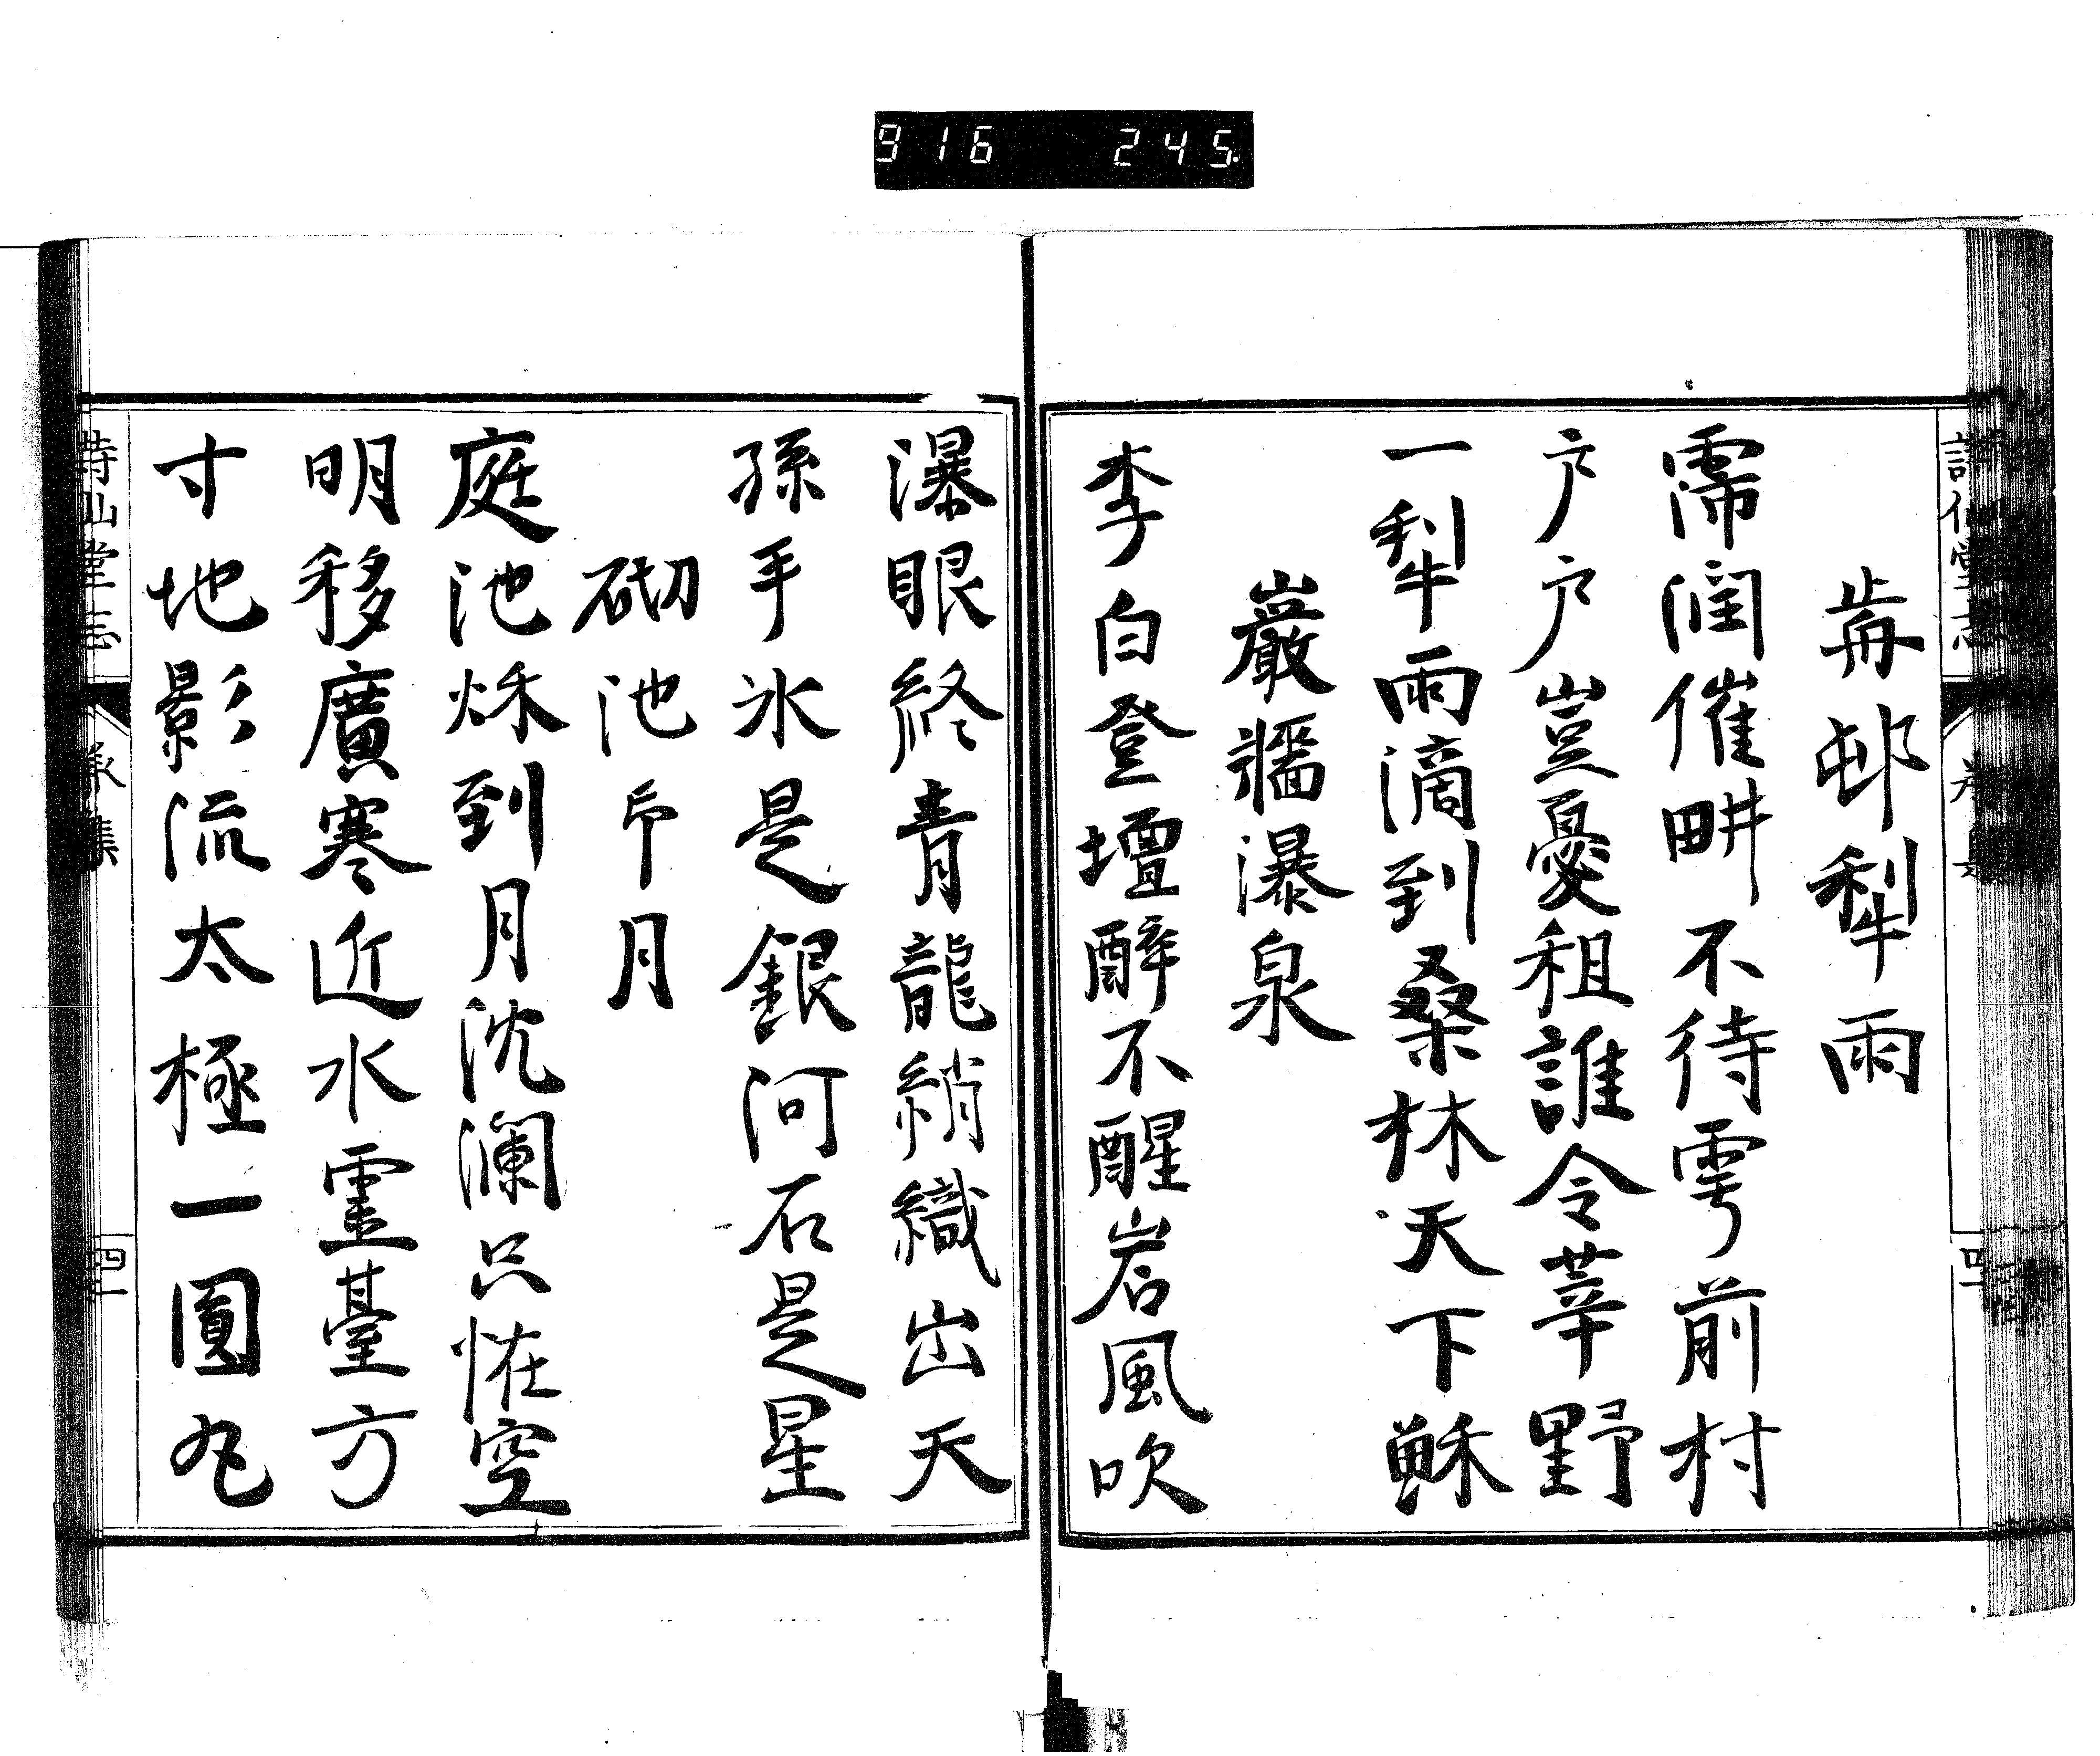 916 245.
歬邨犁雨
濡潤催畊不待雩前村
戶戶豈憂租誰令莘野
一犁雨滴到桑林天下穌
巖牆瀑泉
李白登壇醉不醒岩風吹
瀑眼終青龍綃織出天
孫手氷是銀河石是星
砌池印月
庭池秌到月沈瀾只恠空
明移廣寒近水霊臺方
寸地影流太極一圓丸
詩仙堂志
四一